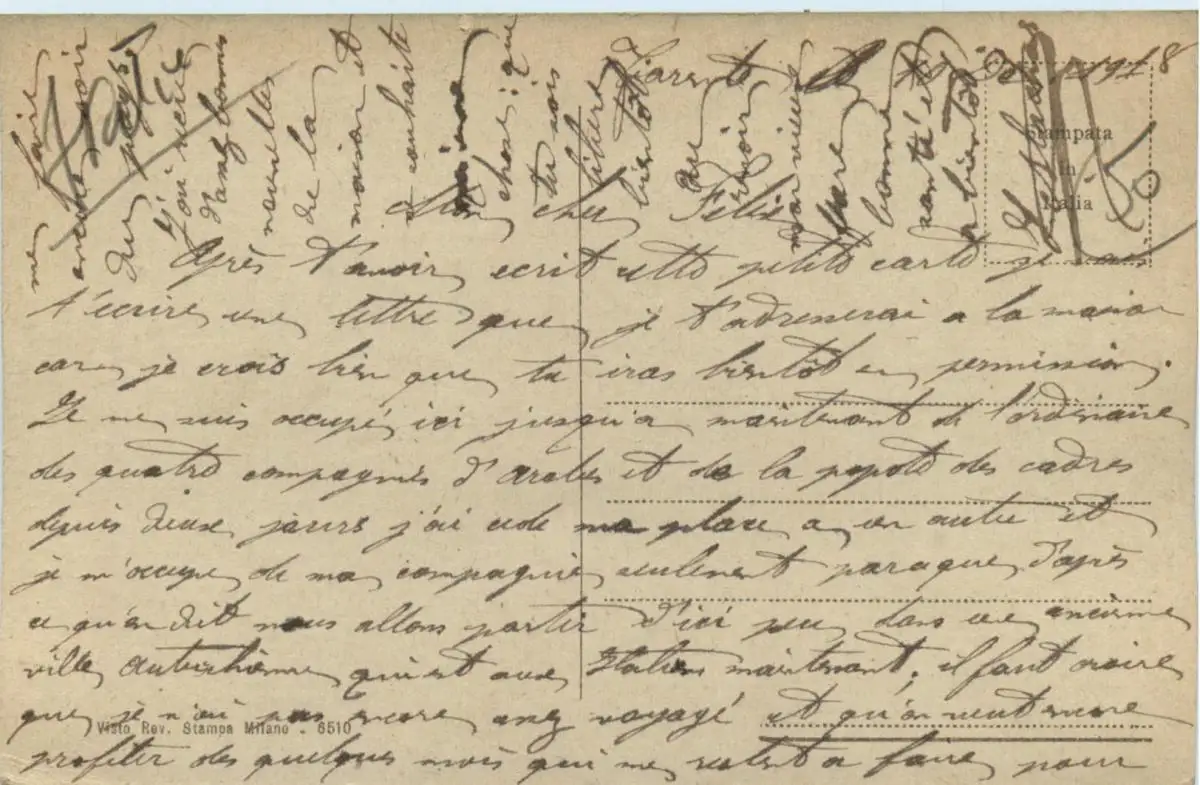 Tarente le 1918
Mon cher Félix
Après t'avoir ecrit cette petite carte je vais
t'écrire une lettre que je t'adresserai a la maison
car je crois bien que tu iras bientôt en permission.
Je me suis occupé ici jusqu'a maintenant de l'ordinaire
des quatre compagnies d'arabes et de la popote des cadres
depuis deux jours j'ai cédé ma place a un autre et
je m'occupe de ma compagnie seulement parceque d'après
ce qu'on dit nous allons partir d'ici peu dans une ancienne
ville autrichienne qui est aux Italiens maintenant, il faut croire
que je n'ai pas encore assez voyagé et qu'on veut encore
profiter des quelques mois qui me restent a faire pour
me faire
encore voir
du pays.
J'ai
d'assez bonnes
nouvelles
de la
maison et
souhaite
chose : que
tu sois
libéré
bientôt
Au
revoir
mon vieux
bonne
santé et
a bientôt
Stampata
in
Italia
Visto Rev. Stampa Milano - 6510